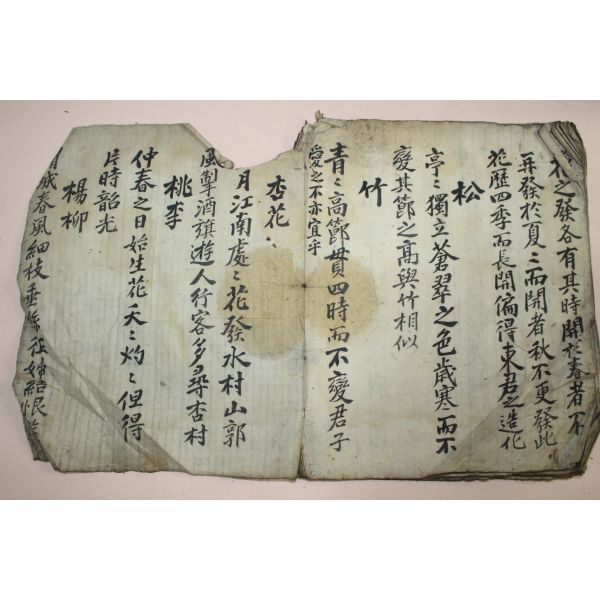 花之發各有其時開於春者不
再發於夏夏而開者秋不更發此
花歷四季而長開偏得東君之造化
松
亭亭獨立蒼翠之色歲寒而不
變其節之高與竹相似
竹
青青高節貫四時而不變君子
愛之不亦宜乎
杏花
月江南處處花發水村山郭
風掣酒旗遊人行客多尋杏村
桃李
仲春之日始生花夭夭灼灼但得
片時韶光
楊柳
城春風細枝垂絲